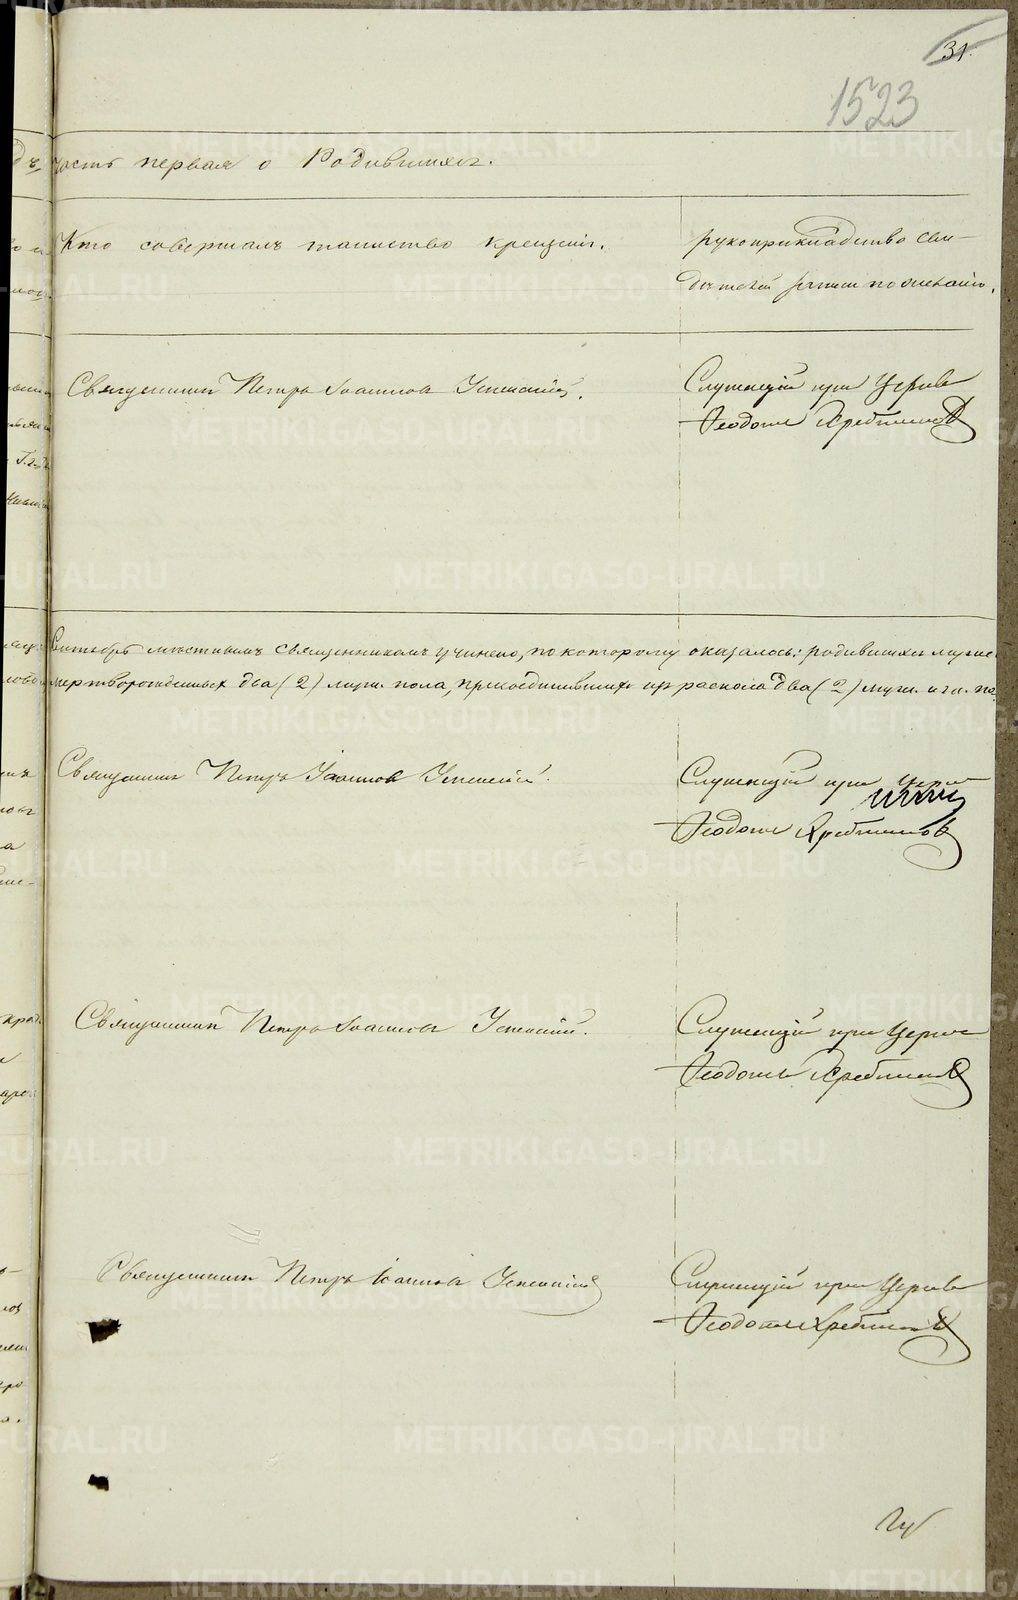 31.
1523
часть первая о Родившихся.
Кто совершалъ таинство крещенія.
рукоприкладство сви-
дѣтелей записи по желанію.
Священникъ Петръ Іоанновъ Успенскій.
Служащій при Церкви
Ѳеодотъ Хребтиковъ
Сентябрь мѣстнымъ священникомъ учинено, по которому оказалось: родившихся муже
мертворожденныхъ два (2) муж. пола, присоединившихся из раскола два (2) муж. и
Священникъ Петръ Іоанновъ Успенскій.
Служащій при Церкви
Ѳеодотъ Хребтиковъ
Священникъ Петръ Іоанновъ Успенскій.
Служащій при Церкви
Ѳеодотъ Хребтиковъ
Священникъ Петръ Іоанновъ Успенскій
Служащій при Церкви
Ѳеодотъ Хребтиковъ
METRIKI.GASO-URAL.RU